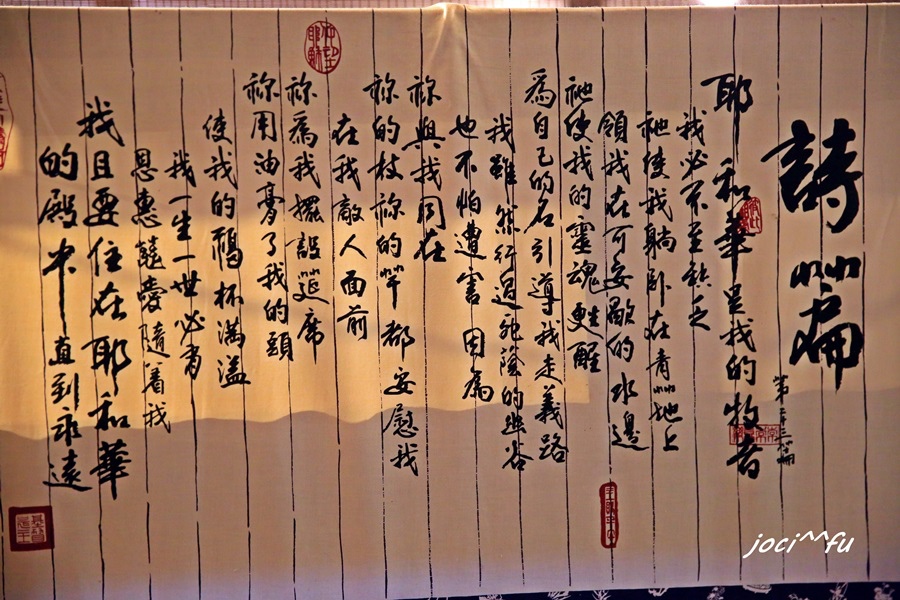 詩篇
第二十三篇
耶和華是我的牧者
我必不至缺乏
祂使我躺臥在青草地上
領我在可安歇的水邊
祂使我的靈魂甦醒
為自己的名引導我走義路
我雖然行過死陰的幽谷
也不怕遭害因為
祢與我同在
祢的杖祢的竿都安慰我
在我敵人面前
祢為我擺設筵席
祢用油膏了我的頭
使我的福杯滿溢
我一生一世必有
恩惠慈愛隨著我
我且要住在耶和華
的殿中直到永遠
joci^^fu